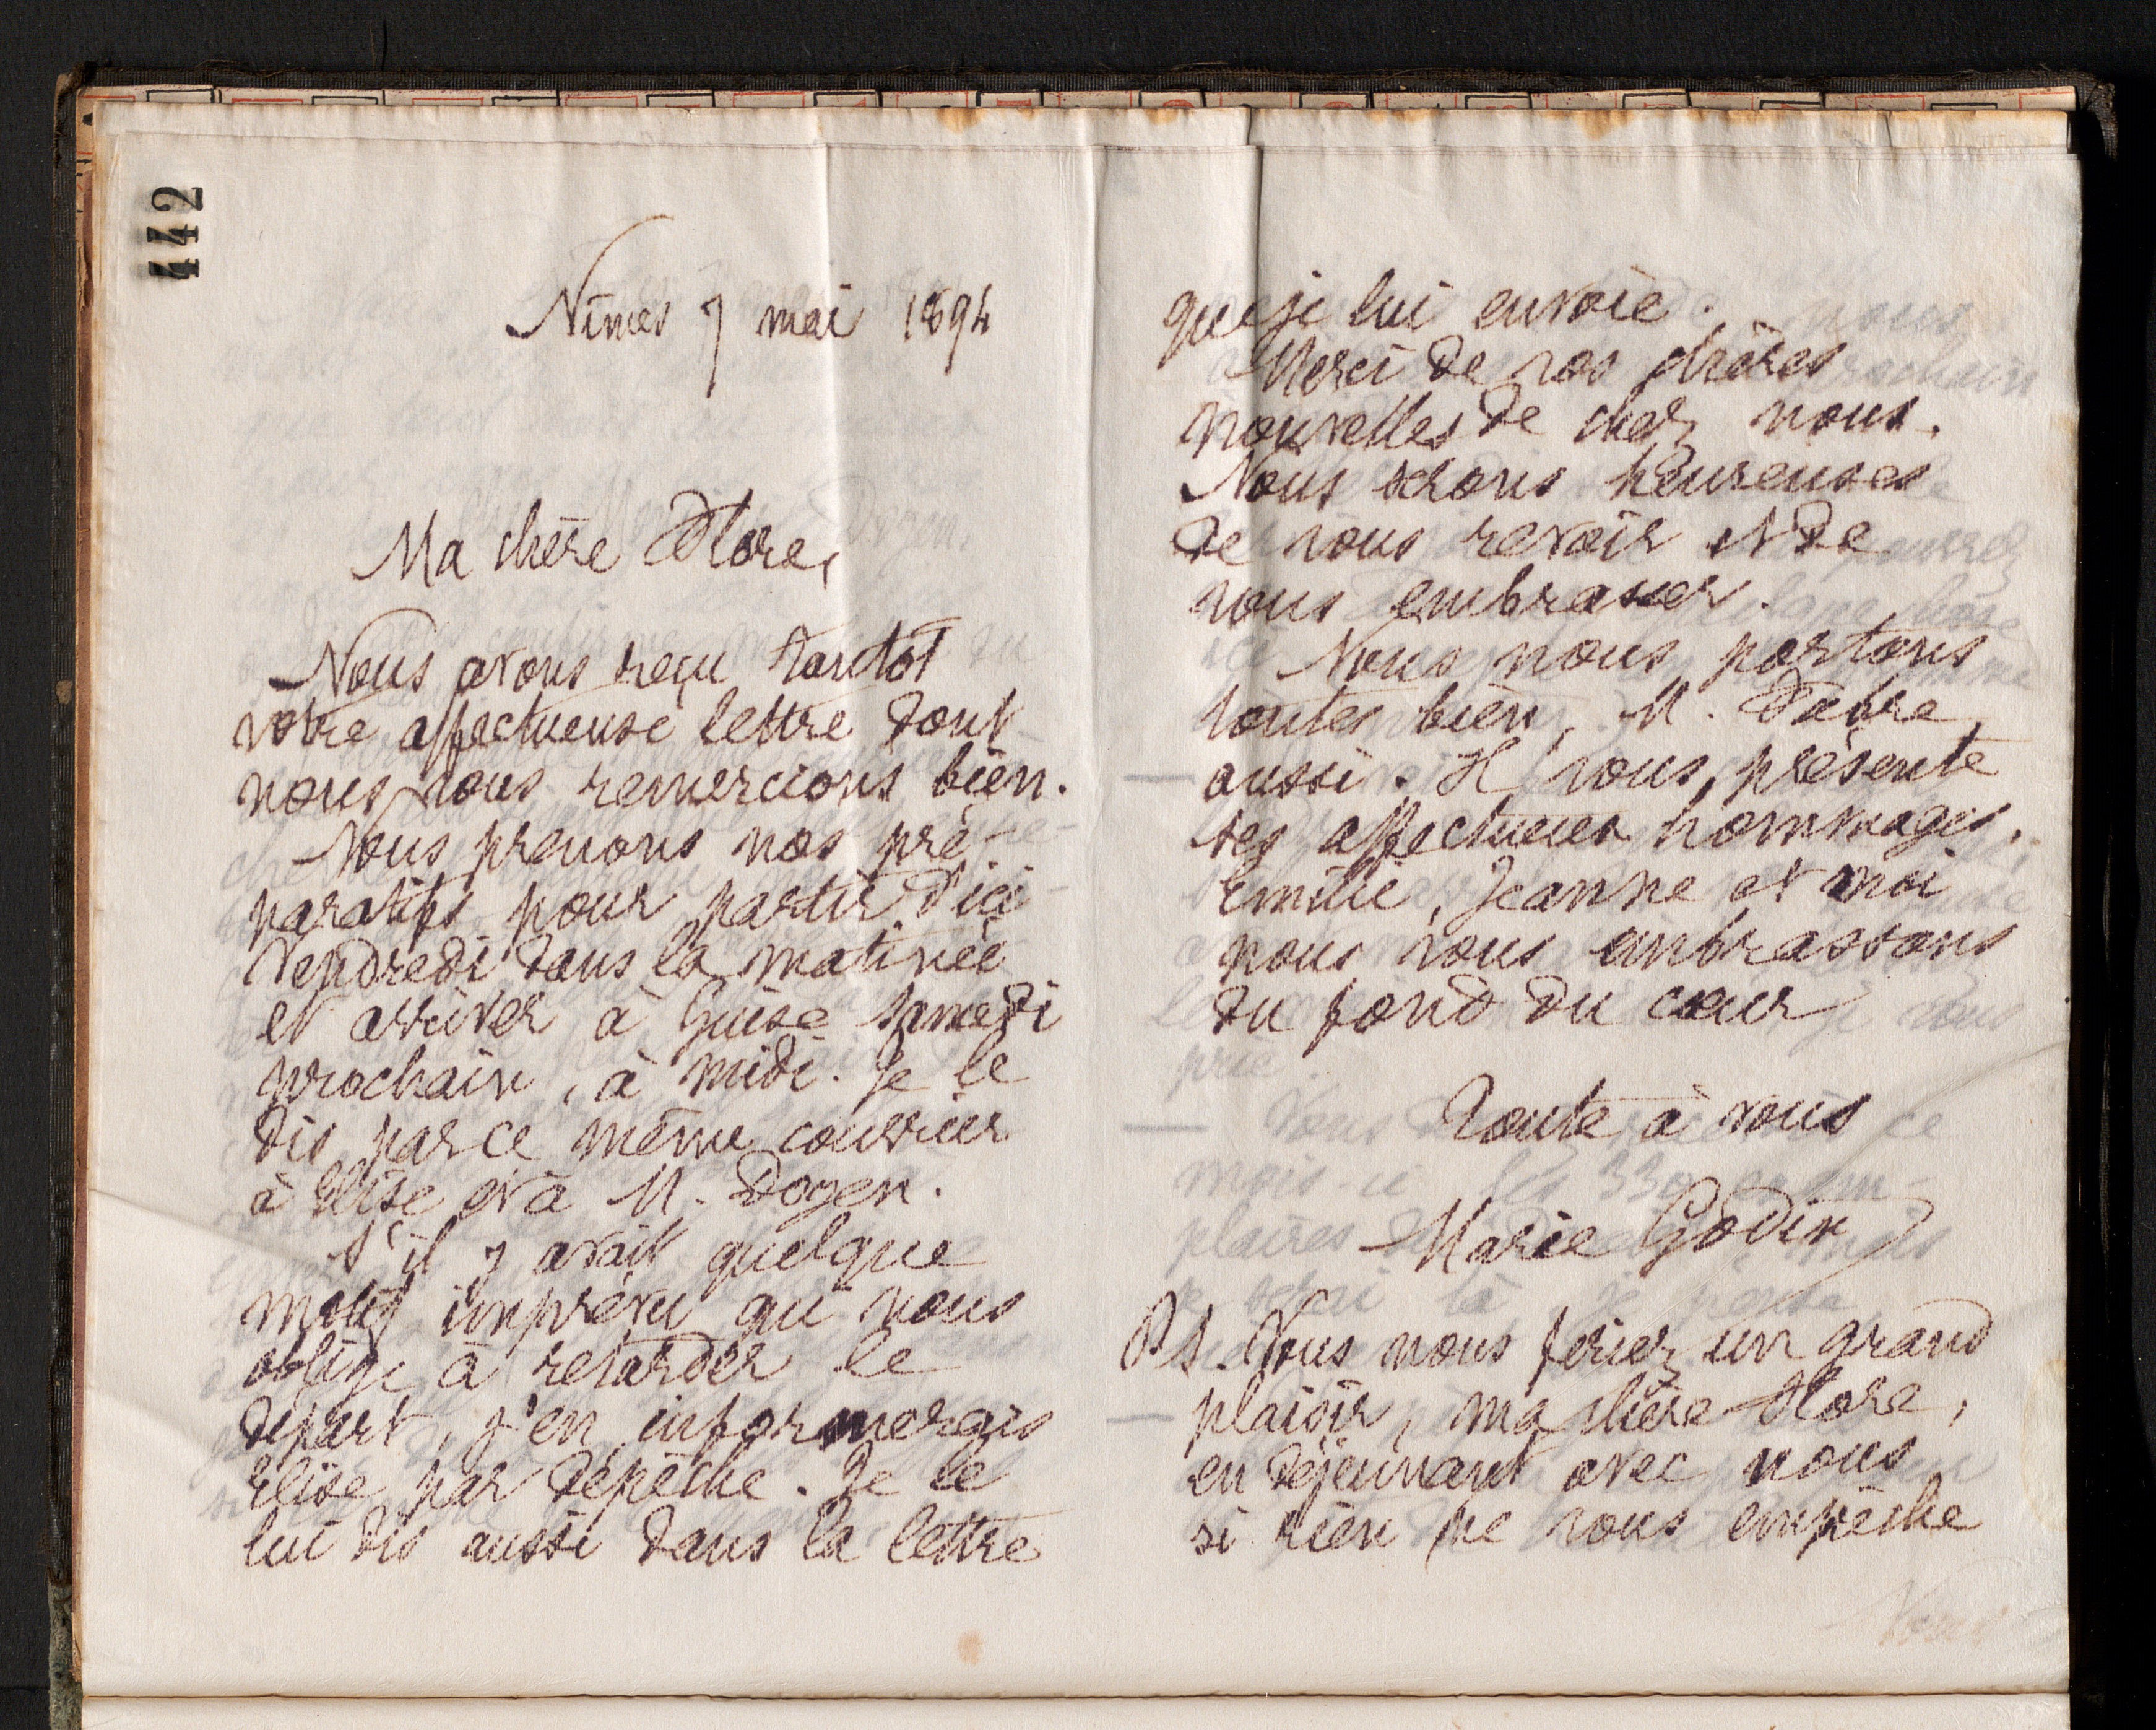 442
Nîmes 7 mai 1894
Ma chère Flore,
Nous avons reçu tantôt
votre affectueuse lettre dont
nous vous remercions bien.
Nous prenons nos pré-
paratifs pour partir d'ici
Vendredi dans la matinée
et arriver à Guise samedi
prochain, à midi. Je le
dis par ce même courrier
à Élise et à M. Doyen.
S'il y avait quelque
motif imprévu qui nous
oblige à retarder le
départ, j'en informerais
Élise par dépêche. Je le
lui dis aussi dans la lettre
que je lui envoie.
Merci de vos chères
nouvelles de chez nous.
Nous serons heureuses
de vous revoir et de
vous embrasser.
Nous nous portons
toutes bien, M. Fabre
aussi. Il vous présente
ses affectueux hommages.
Emilie, Jeanne et moi
nous vous embrassons
du fond du cœur
Toute à vous
Marie Godin
P.S. Vous nous feriez un grand
plaisir, ma chère Flore,
en déjeunant avec nous
si rien ne vous empêche